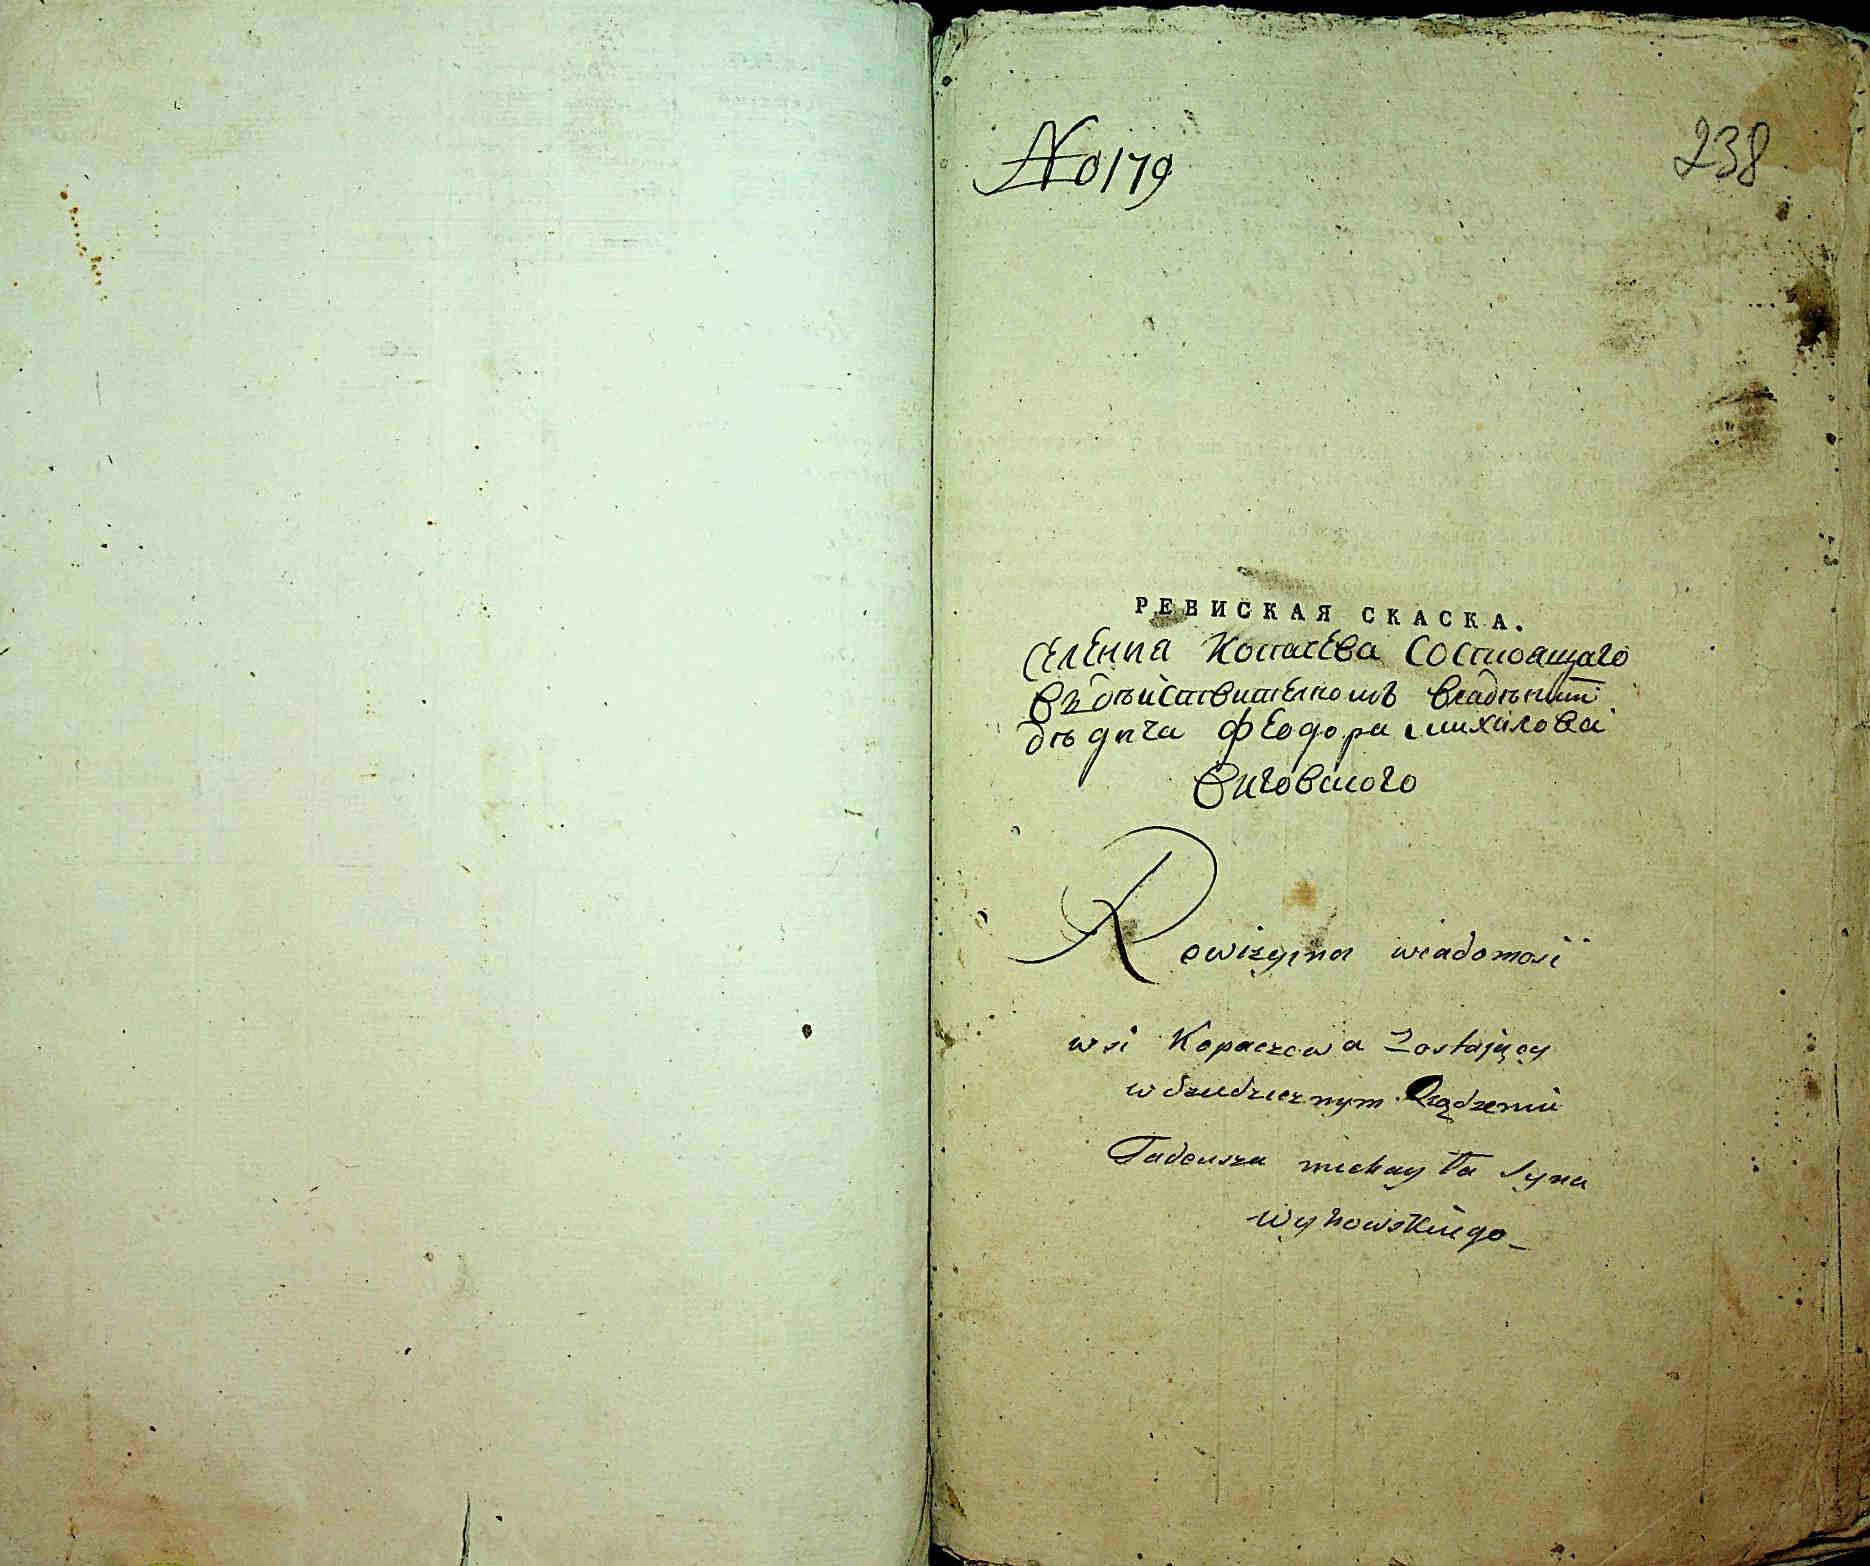 No 179
238
РЕВИСКАЯ СКАСКА.
селения Копачева состоящаго
въ действителномъ владѣнїи
дѣдича Феодора михалова
Виговского
Rewizyina wiadomosc
wsi Kopaczewa Zostaiący
w dziedzicznym Rządzeniu
Tadeusza michayła Syna
Wyhowskiego